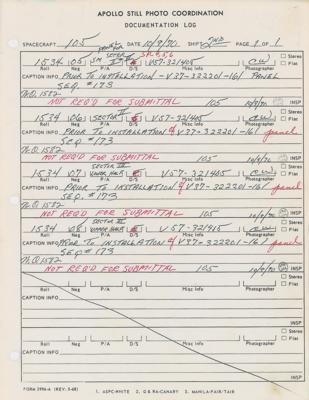 APOLLO STILL PHOTO COORDINATION
DOCUMENTATION LOG
SPACECRAFT 105 DATE 10/9/70 SHIFT 2ND PAGE 1 OF 1
1534 05 SM V57-32/405
Roll Neg A/P D/S Misc Info Photographer
Stereo
Flat
CAPTION INFO PRIOR TO INSTALLATION - V37-322201-161 PANEL
SEQ. #173
T.O. 1582
NOT REQ'D FOR SUBMITTAL 105 10/9/70 INSP
1534 06 SECTOR V57-32/405
Roll Neg A/P D/S Misc Info Photographer
Stereo
Flat
CAPTION INFO PRIOR TO INSTALLATION of V37-322201-161 panel
SEQ #173
T.O. 1582
NOT REQ'D FOR SUBMITTAL 105 10/9/70 INSP
SECTOR
1534 07 UPPER HALF V57-321/405
Roll Neg A/P D/S Misc Info Photographer
Stereo
Flat
CAPTION INFO PRIOR TO INSTALLATION of V37-322201-161 panel
SEQ. #173
T.O. 1582
NOT REQ'D FOR SUBMITTAL 105 10/9/70 INSP
SECTOR
1534 08 V57-32
Roll Neg A/P D/S Misc Info Photographer
Stereo
Flat
CAPTION INFO PRIOR TO INSTALLATION of V37-322201-161 panel
SEQ #173
T.O. 1582
NOT REQ'D FOR SUBMITTAL 105 10/9/70 INSP
Roll Neg A/P D/S Misc Info Photographer
Stereo
Flat
CAPTION INFO
INSP
Roll Neg A/P D/S Misc Info Photographer
Stereo
Flat
CAPTION INFO
INSP
FORM 2996-A (REV. 5-68) 1. ASPC-WHITE 2. Q & RA-CANARY 3. MANILA-FAIR/TAIR